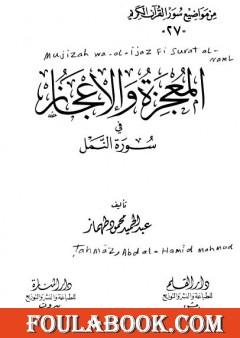 من مواضيع سور القرآن الكريم
«٢٧»
Mujizah wa-al-ijaz fi Surat al-
naml
المعجزة والإعجاز
في
سورة النمل
تأليف
عبد الحميد محمود طهماز
Tahmaz, Abd al-Hamid Mahmud
دار القلم
للطباعة والنشر والتوزيع
دار المنارة
للطباعة والنشر والتوزيع
بيروت
FOULABOOK.COM